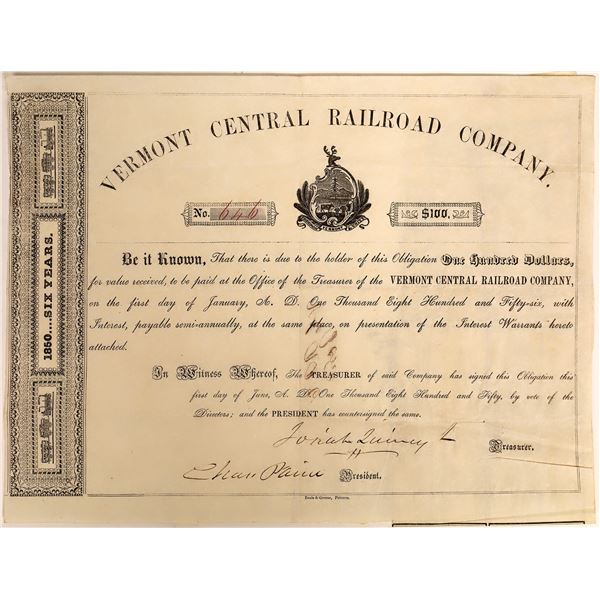 VERMONT CENTRAL RAILROAD COMPANY.
No. 646
$100,
VERMONT
1850....SIX YEARS.
Be it Known, That there is due to the holder of this Obligation One Hundred Dollars,
for value received, to be paid at the Office of the Treasurer of the VERMONT CENTRAL RAILROAD COMPANY,
on the first day of January, A. D. One Thousand Eight Hundred and Fifty-six, with
Interest, payable semi-annually, at the same place, on presentation of the Interest Warrants hereto
attached.
In Witness Whereof, The TREASURER of said Company has signed this Obligation this
first day of June, A. D. One Thousand Eight Hundred and Fifty, by vote of the
Directors; and the PRESIDENT has countersigned the same.
Josiah Quincy Jr
Treasurer.
Chas Paine
President.